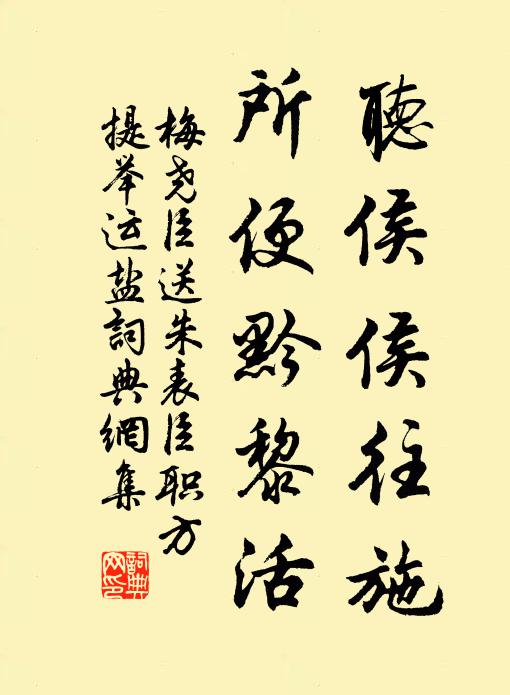 聽侯侯往施
所便黔黎活
梅尧臣送朱表臣职方
提举运盐詞典網集
詞典
网印